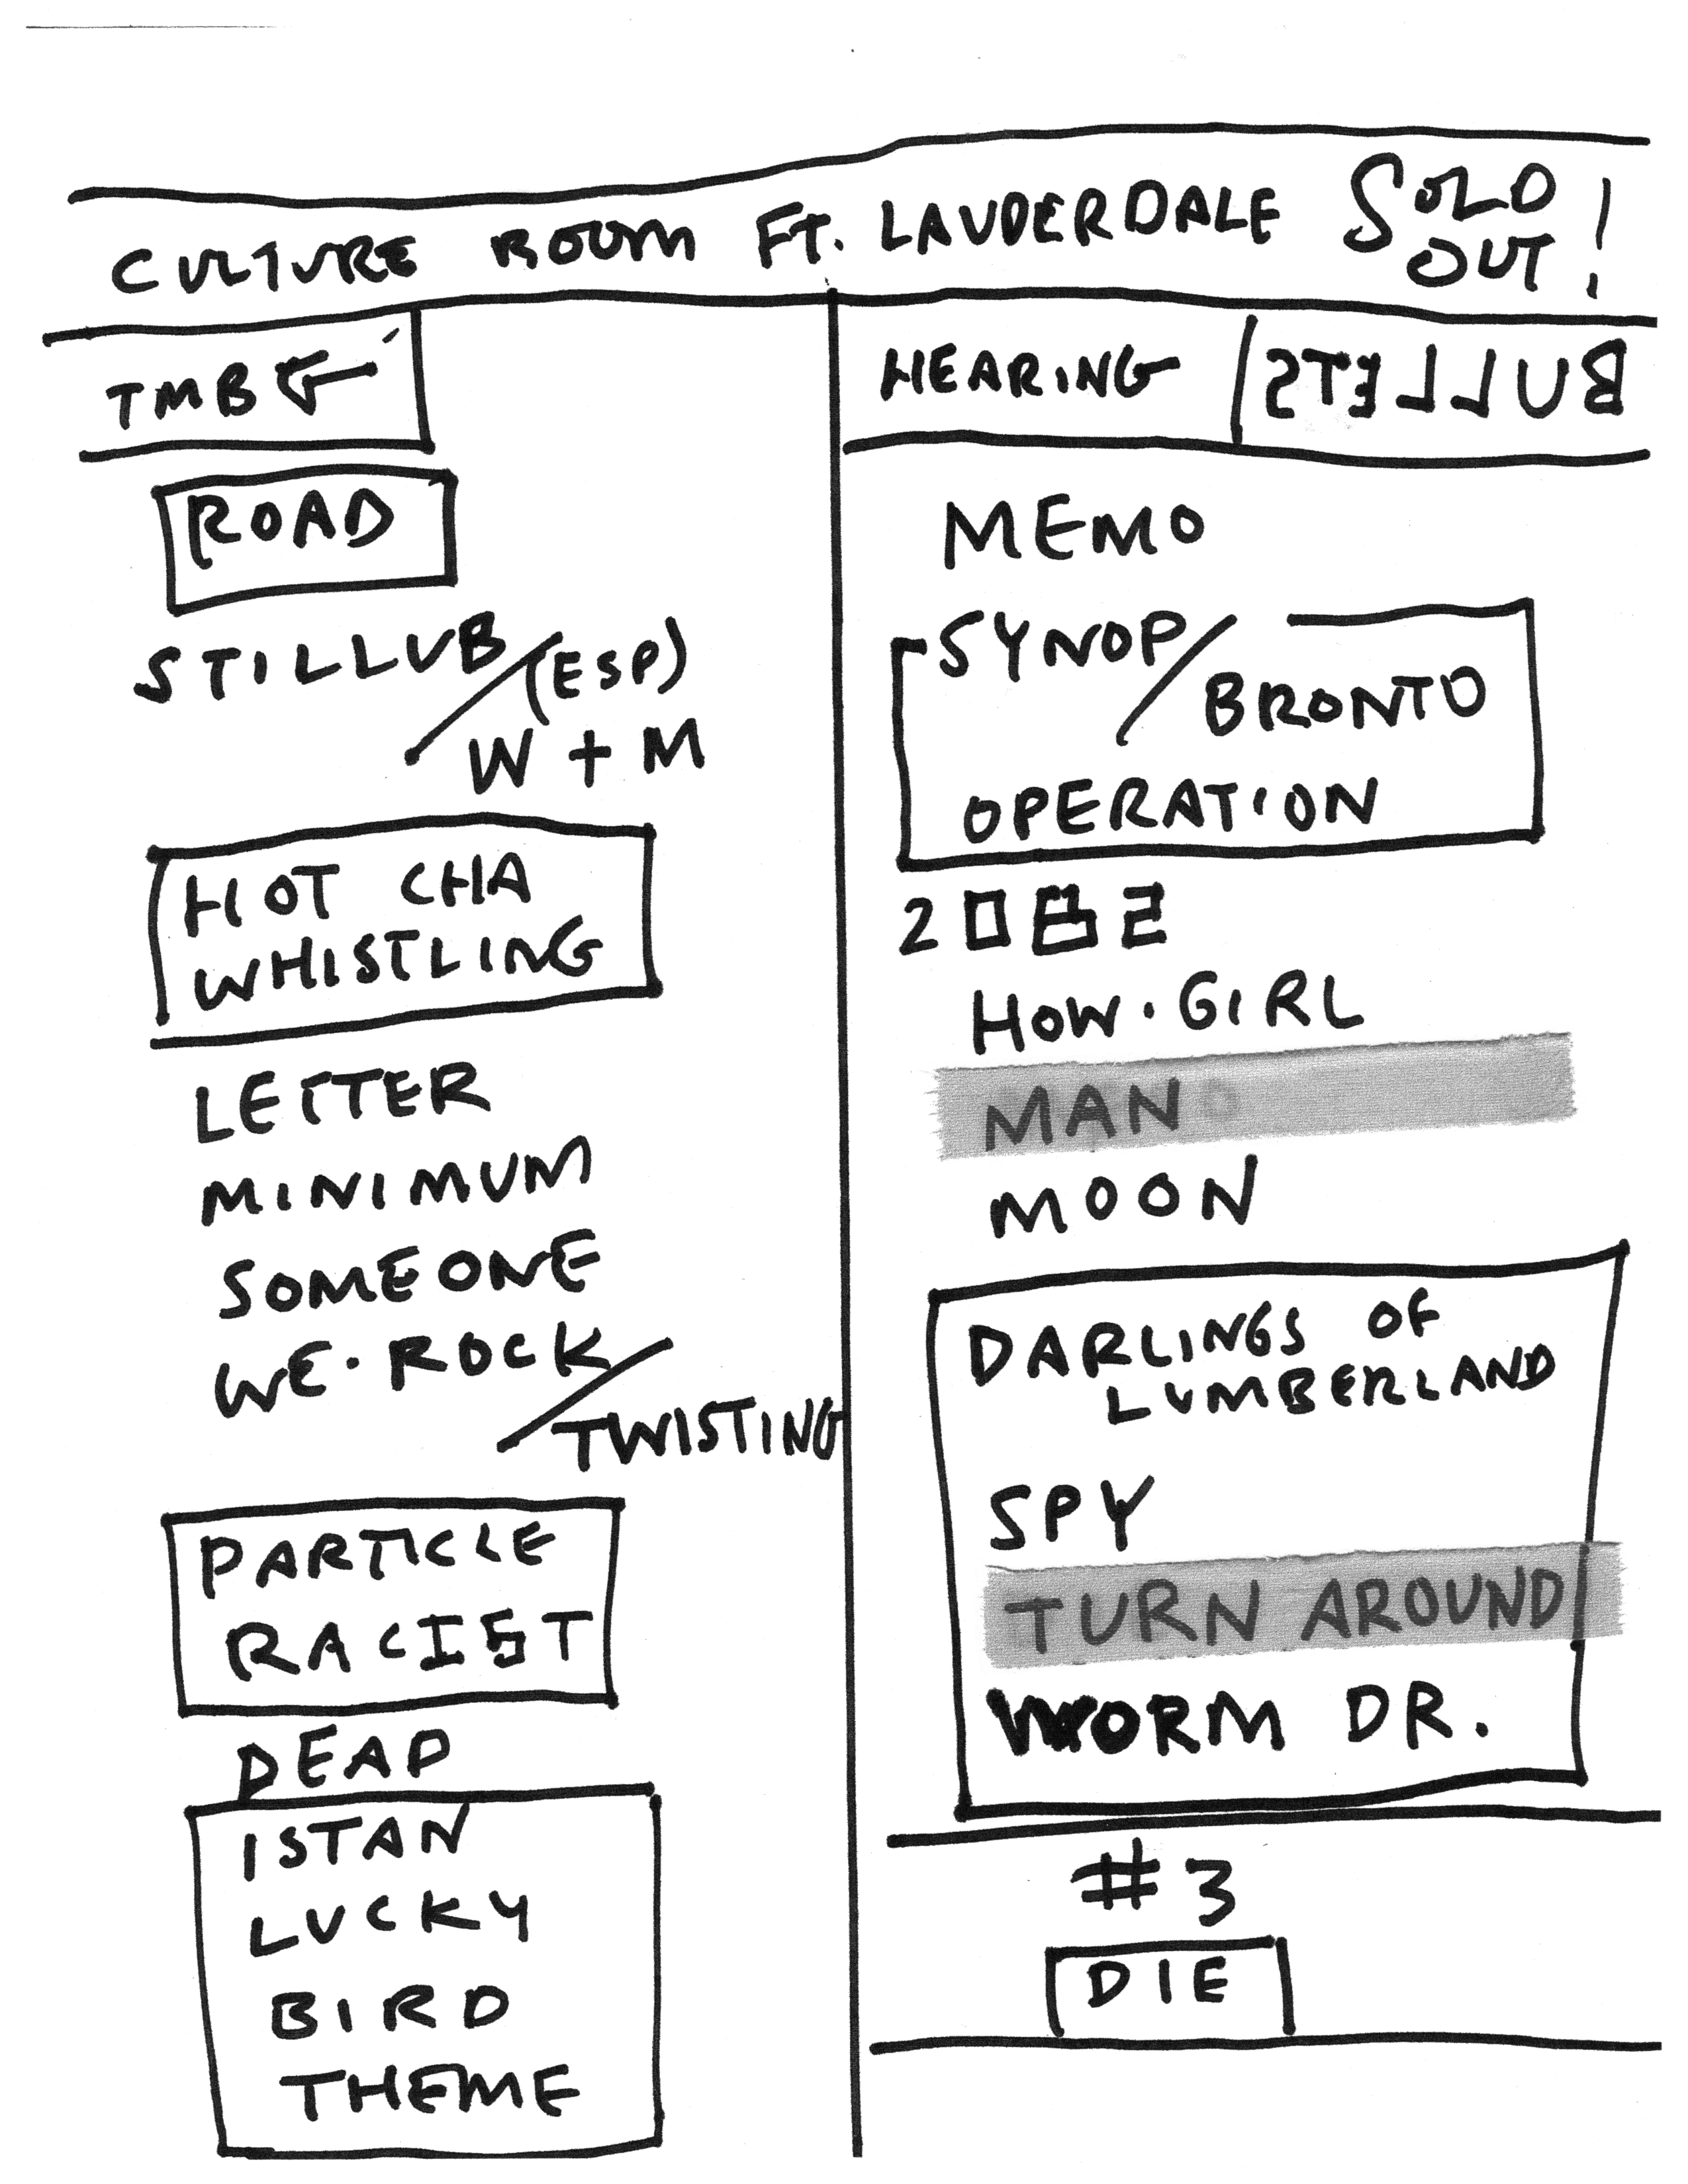 CULTURE ROOM FT. LAUDERDALE SOLD OUT!
TMBG
ROAD
STILLUB / (ESP)
W + M
HOT CHA
WHISTLING
LETTER
MINIMUM
SOMEONE
WE·ROCK /
TWISTING
PARTICLE
RACIST
DEAD
ISTAN
LUCKY
BIRD
THEME
HEARING | BULLETS
MEMO
SYNOP /
BRONTO
OPERATION
2082
HOW·GIRL
MAN
MOON
DARLINGS OF
LUMBERLAND
SPY
TURN AROUND
WORM DR.
#3
DIE